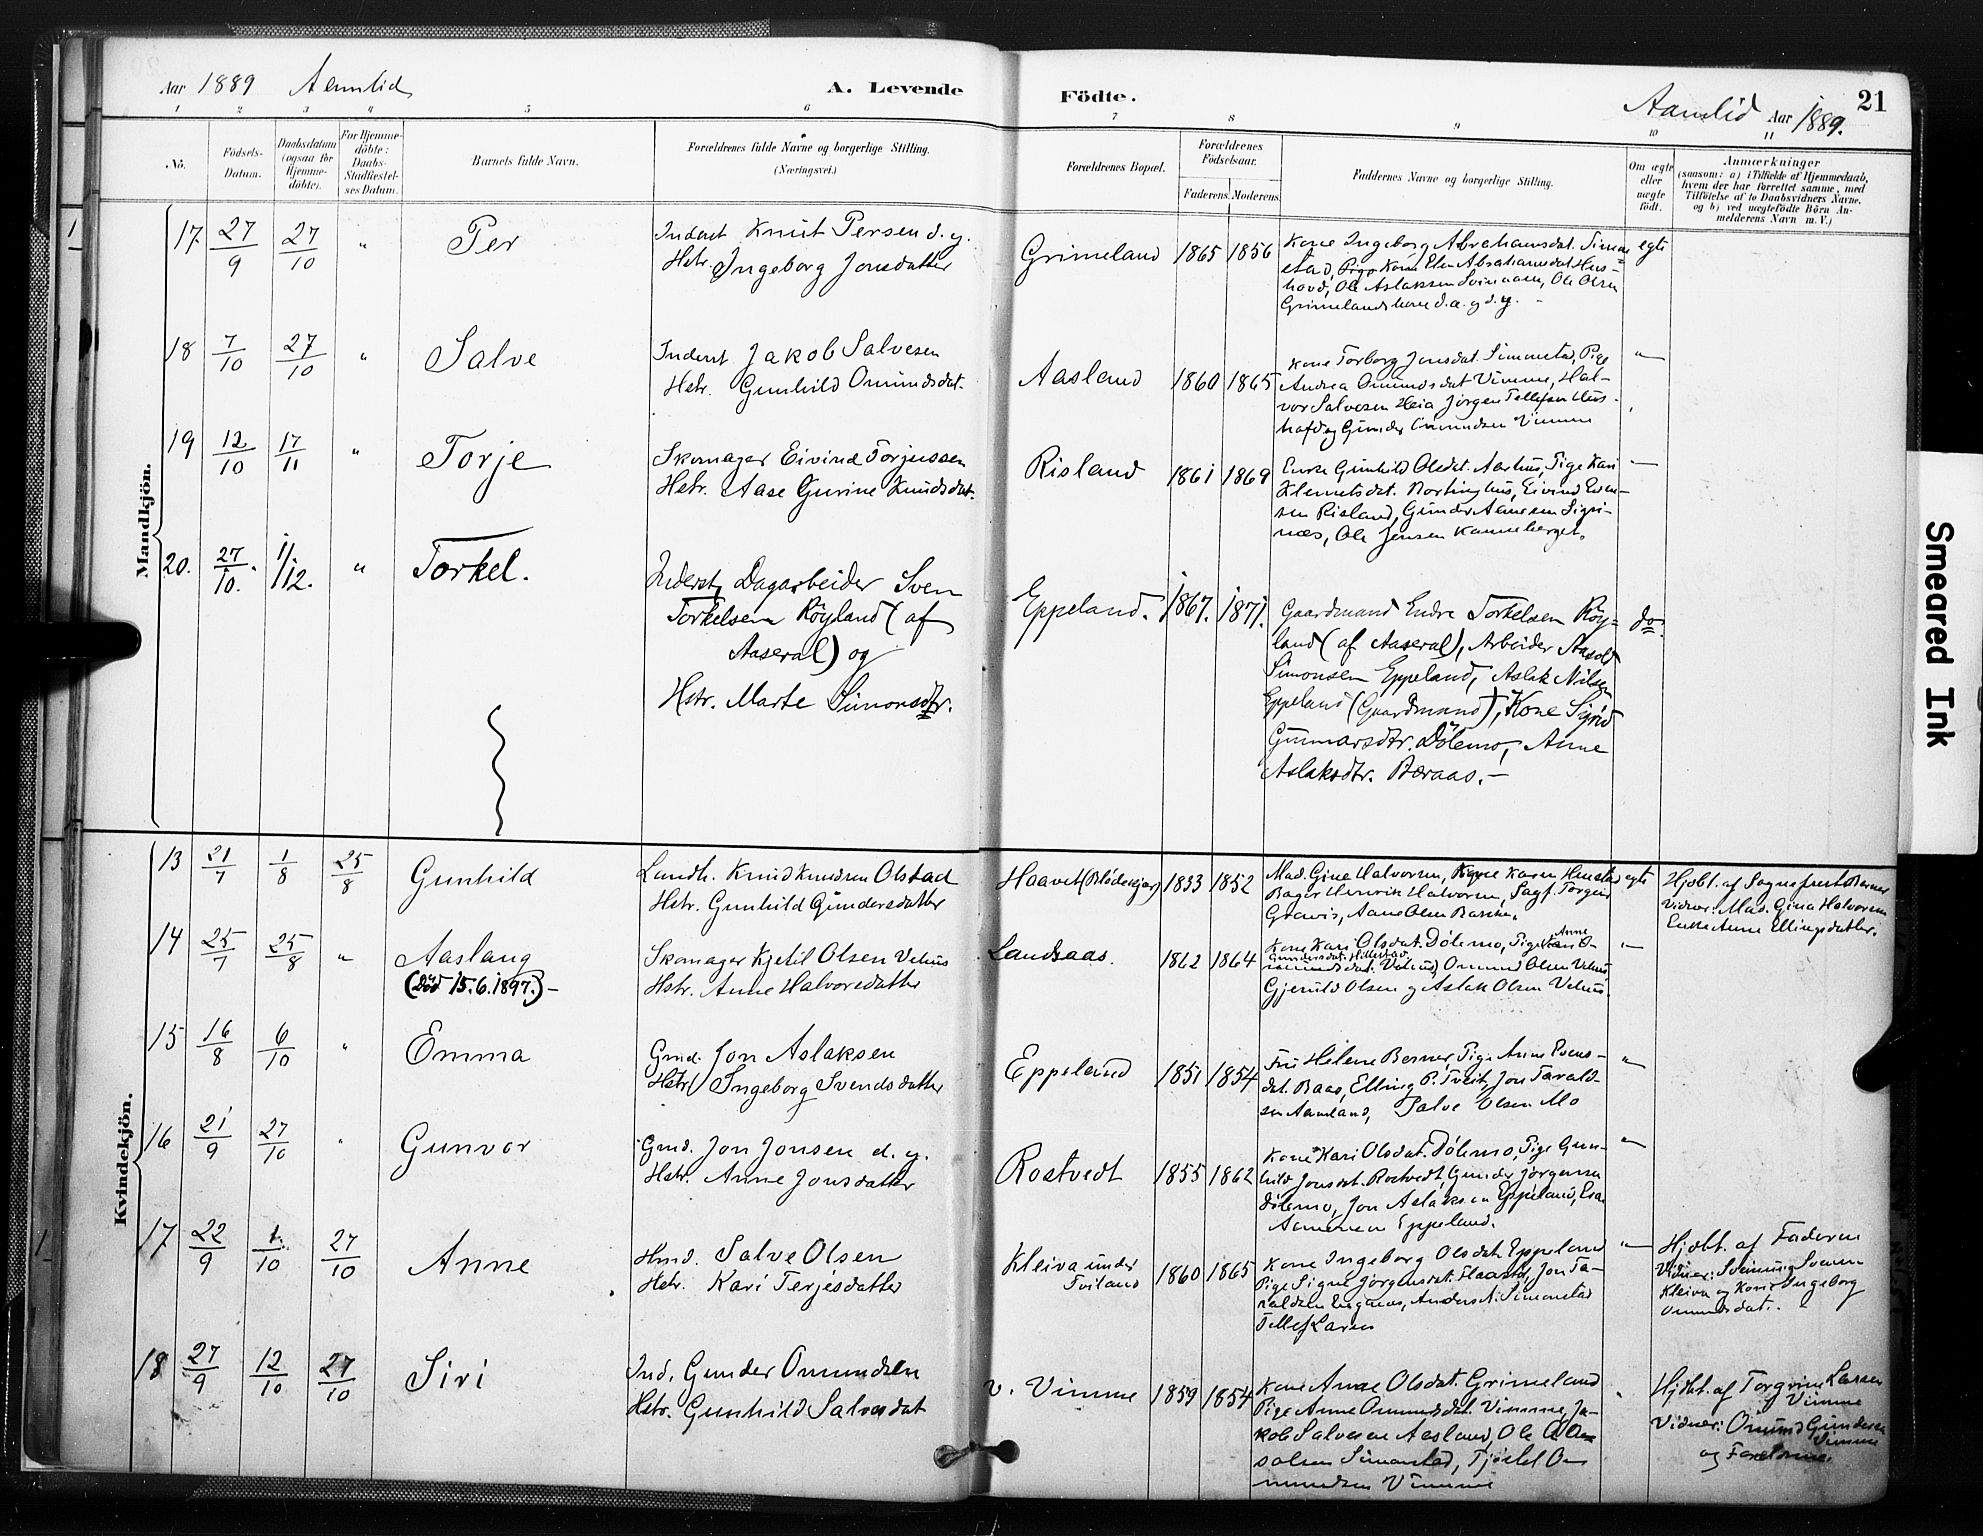 Aar 1889 Aamlid
A. Levende
Födte.
Aamlid Aar 1889.
21
1 2 3 4 5 6 7 8 9 10 11
No.
Födsels-
Datum.
Daabsdatum
(ogsaa for
Hjemme-
döbte).
For Hjemme-
döbte:
Daabs-
Stadfæstel-
ses Datum.
Barnets fulde Navn.
Forældrenes fulde Navne og borgerlige Stilling.
(Næringsvei.)
Forældrenes Bopæl.
Forældrenes
Födselsaar.
Faderens. Moderens.
Faddernes Navne og borgerlige Stilling.
Om ægte
eller
uægte
født.
Anmærkninger
(saasom: a) i Tilfælde af Hjemmedaab,
hvem der har forrettet samme, med
Tilföielse af to Daabsvidners Navne,
og b) ved uægtefödte Börn An-
melderens Navn m. V.)
Mandkjön.
17 27/9 27/10 " Per
Inderst Knut Persen d. y.
Hstr. Ingeborg Jonsdatter
Grimeland 1865 1856
Kone Ingeborg Abrahamsdat. Simon=
stad, Pige Kone Elen Abrahamsdat. Hus-
hovd, Ole Aslaksen Svinaasen, Ole Olsen
Grimeland d.æ. og d.y.
egte
18 7/10 27/10 " Salve
Inderst Jakob Salvesen
Hstr. Gunhild Omundsdat.
Aasland 1860 1865
Kone Torborg Jonsdat. Simonstad, Pige
Andrea Omundsdat Vimme, Hal-
vor Salvesen Heia Jörgen Tellefsen Hus-
hofd og Gunder Omundsen Vimme
"
19 12/10 17/11 " Torje
Skomager Eivind Torjussen
Hstr. Aase Gurine Knudsdat.
Risland 1861 1869
Enke Gunhild Olsdat. Aarhus, Pige Kari
Klemetsdat. Nortinghus, Eivind Even-
sen Risland, Gunder Aanesen Sigri-
næs, Ole Jensen Kanneberget.
"
20. 27/10. 1/12. " Torkel.
Inderst, Dagarbeider Sven
Torkelsen Röyland (af
Aaseral) og
Hstr. Marte Simonsdtr.
Eppeland. 1867. 1871.
Gaardmand Endre Torkelsen Röy=
land (af Aaseral), Arbeider Aasold
Simonsen Eppeland, Aslak Nilsen
Eppeland (Gaardmand), Kone Sigrid
Gunnarsdtr. Dölemo, Anne
Aslaksdtr. Beraas.-
do.
Kvindekjön.
13 21/7 1/8 25/8 Gunhild
Landh. Knud Knudsen Olstad
Hstr. Gunhild Gundersdatter
Haavet (Blödekjær) 1833 1852
Mad. Gina Halvorsen, Pige Karen
Bager Henrik Halvorsen, Sagf. Torgeir
Aane Olsen
egte
Hjdbt. af Sogneprest Berner
Vidner: Mad. Gina Halvorsen
Enke Anne Ellingsdatter.
14 25/7 25/8 " Aaslaug
(Död 15.6.1897.)-
Skomager Kjetil Olsen Vehus
Hstr. Anne Halvorsdatter
Landsaas. 1862 1864
Kone Kari Olsdat. Dölemo, Pige Anne
Gundersdat. Hillestad,
Vehus, Omund Olsen Vehus
Gjeruld Olsen og Aslak Olsen Vehus.
"
15 16/8 6/10 " Emma
Gmd. Jon Aslaksen
Hstr. Ingeborg Svendsdatter
Eppeland 1851 1854
Fru Helene Berner, Pige Anne Evens-
dat. Baas, Elling P. Tveit, Jon Tarald-
sen Aamland, Salve Olsen Mo
"
16 21/9 27/10 " Gunvor
Gmd. Jon Jonsen d. y.
Hstr. Anne Jonsdatter
Rostvedt 1855 1862
Kone Kari Olsdat. Dölemo, Pige Gun-
hild Jonsdat. Rostvedt, Gunder Jörgensen
Dölemo, Jon Aslaksen Eppeland, Esa-
Aanensen Eppeland.
"
17 22/9 1/10 27/10 Anne
Hmd. Salve Olsen
Hstr. Kari Terjesdatter
Kleiva under
Tviland 1860 1865
Kone Ingeborg Olsdat. Eppeland
Pige Signe Jörgensdat. Flaasta, Jon Ta-
raldsen Engenes, Anders A. Simonstad
Tellef Larsen
"
Hjdbt. af Faderen
Vidner: Svennung Svensen
Kleiva og Kone Ingeborg
Omundsdat.
18 27/9 12/10 27/10 Siri
Ind. Gunder Omundsen
Hstr. Gunhild Salvesdat
v. Vimme 1859 1854
Kone Anne Olsdat. Grimeland
Pige Anne Omundsdat. Vimme, Ja-
kob Salvesen Aasland, Ole
Simonstad, Tjöstel Om-
mundsen Vimme
"
Hjdbt. af Torgrim Larsen
Vimme
Vidner: Omund Gundersen
Vimme
og Forældrene.
Smeared Ink